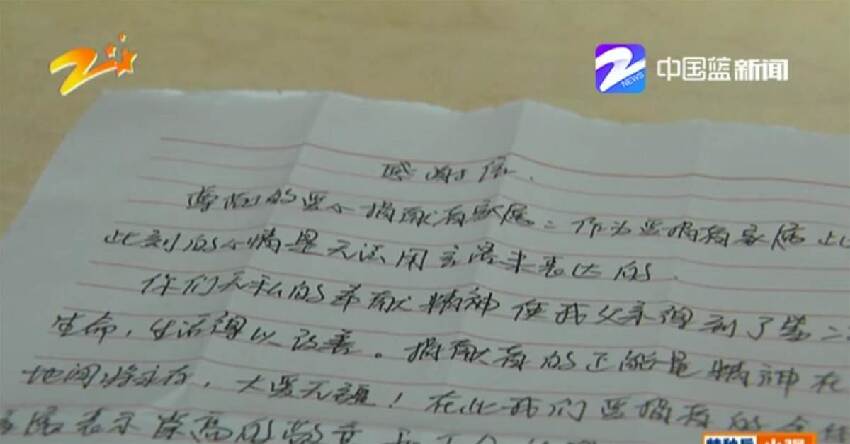 中国蓝新闻
NEWS
感谢信.
尊敬的爱心捐献者家属：作为受捐者家属此
此刻的心情是无法用言语来表达的.
你们无私的奉献精神使我父亲得到了第二
生命，生活得以改善。捐献者的正能量精神在
地间将永存，大爱无疆！在此我们受捐者的全体
家属表示崇高的敬意